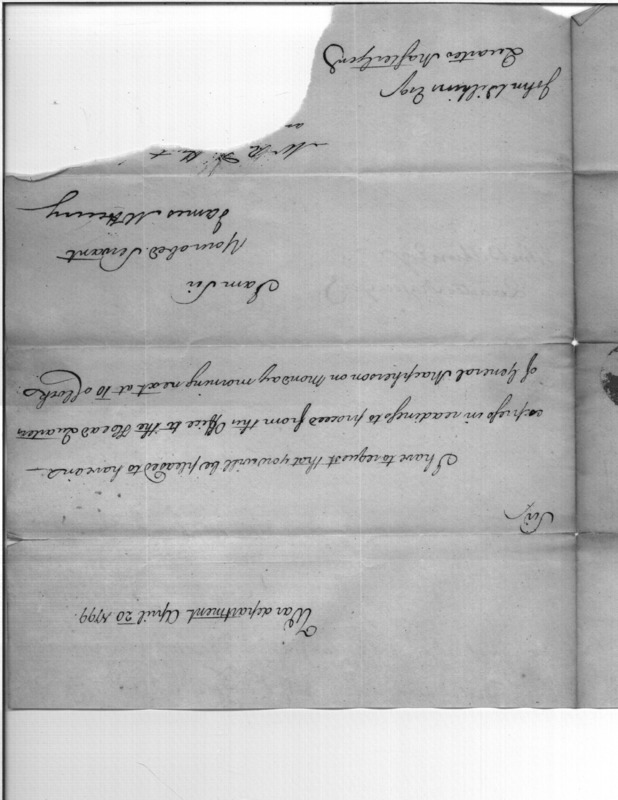 War department April 20 1799.
Sir,
I have to request that you will be pleased to have one
express in readiness to proceed from this Office to the Head Quarters
of General Macpherson on Monday morning next at 10 oClock.
I am Sir
Your obed. Servant
James McHenry
John Wilkins Esqr
Quarter Master Genl